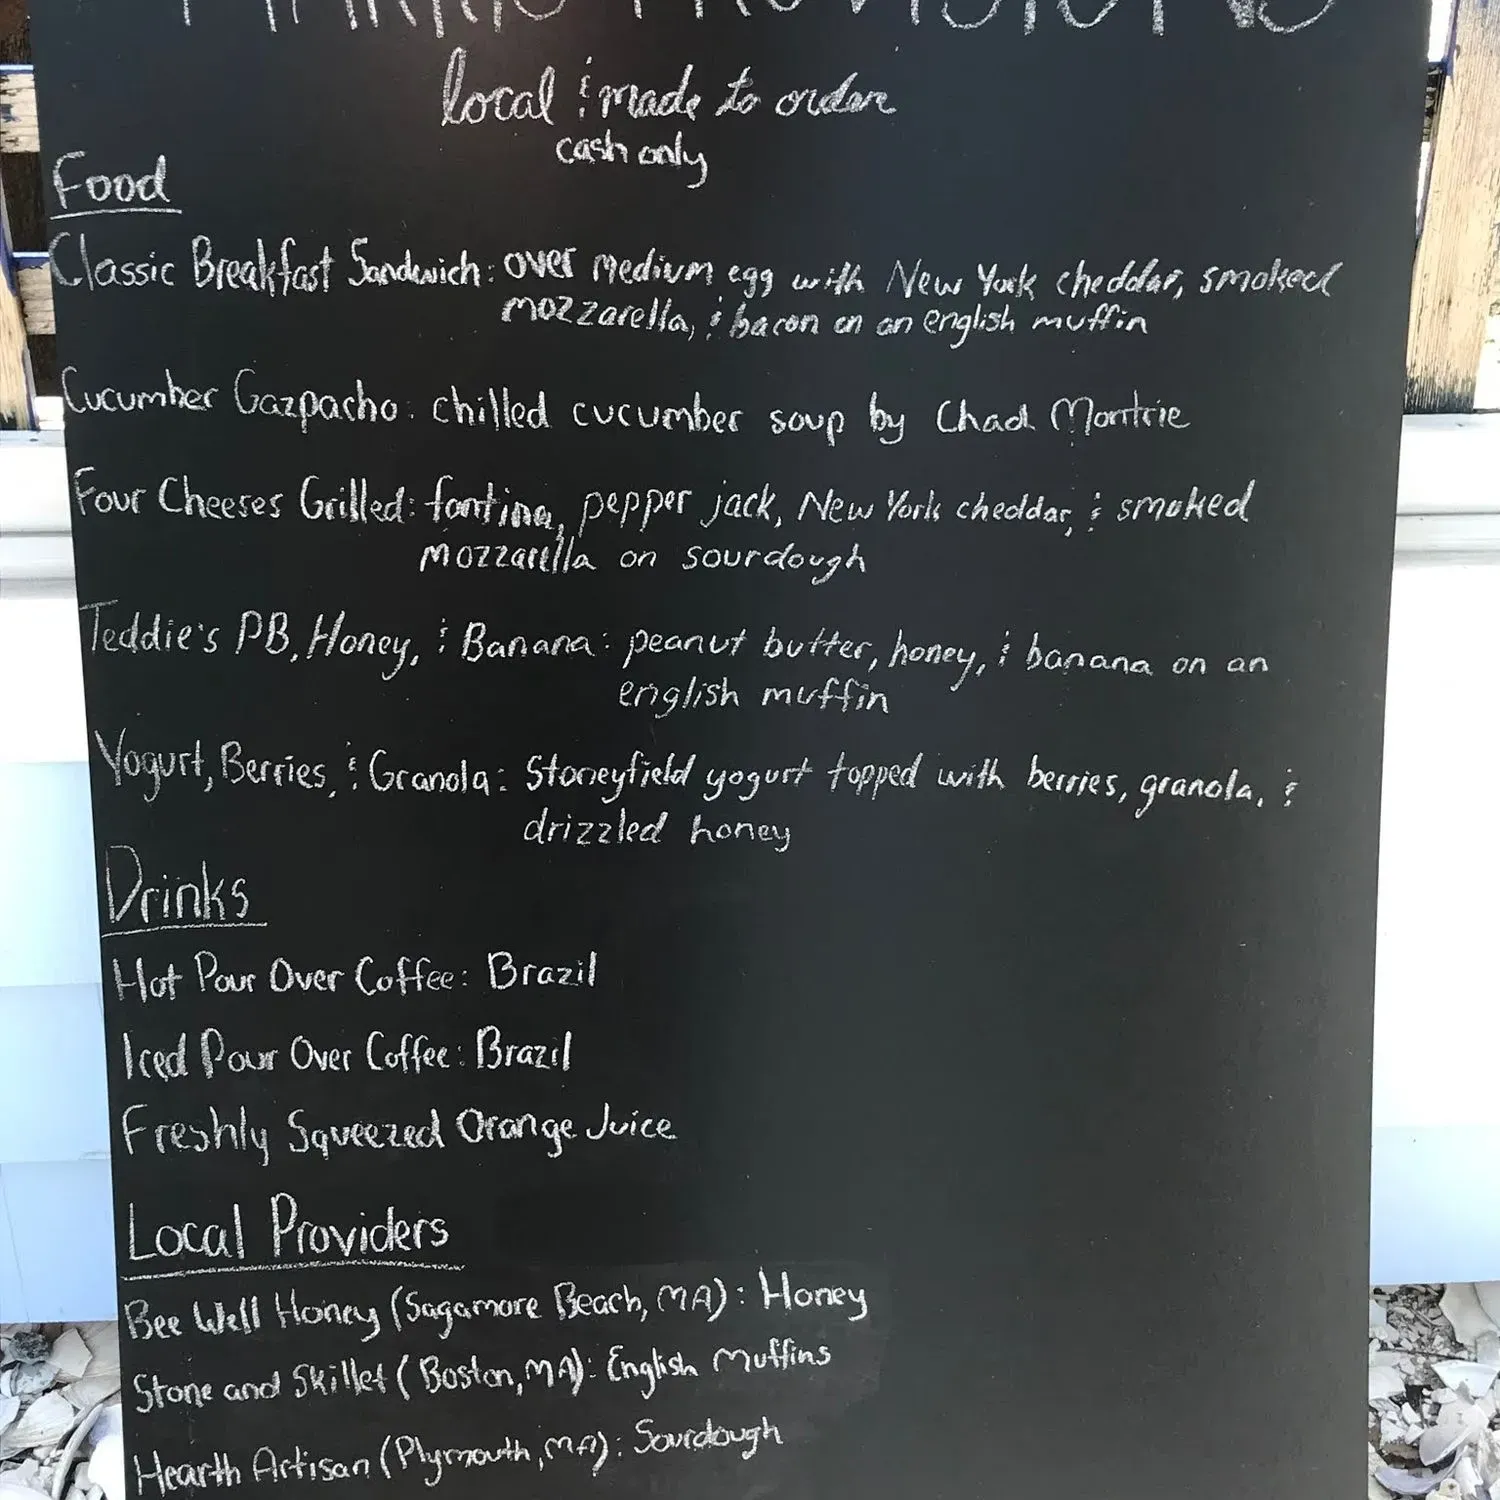 PROVISIONS
local & made to order
cash only
Food
Classic Breakfast Sandwich: over medium egg with New York cheddar, smoked
mozzarella, & bacon on an english muffin
Cucumber Gazpacho: chilled cucumber soup by Chad Montrie
Four Cheeses Grilled: fontina, pepper jack, New York cheddar, & smoked
mozzarella on sourdough
Teddie's PB, Honey, & Banana: peanut butter, honey, & banana on an
english muffin
Yogurt, Berries, & Granola: Stoneyfield yogurt topped with berries, granola, &
drizzled honey
Drinks
Hot Pour Over Coffee: Brazil
Iced Pour Over Coffee: Brazil
Freshly Squeezed Orange Juice
Local Providers
Bee Well Honey (Sagamore Beach, MA): Honey
Stone and Skillet (Boston, MA): English Muffins
Hearth Artisan (Plymouth, MA): Sourdough